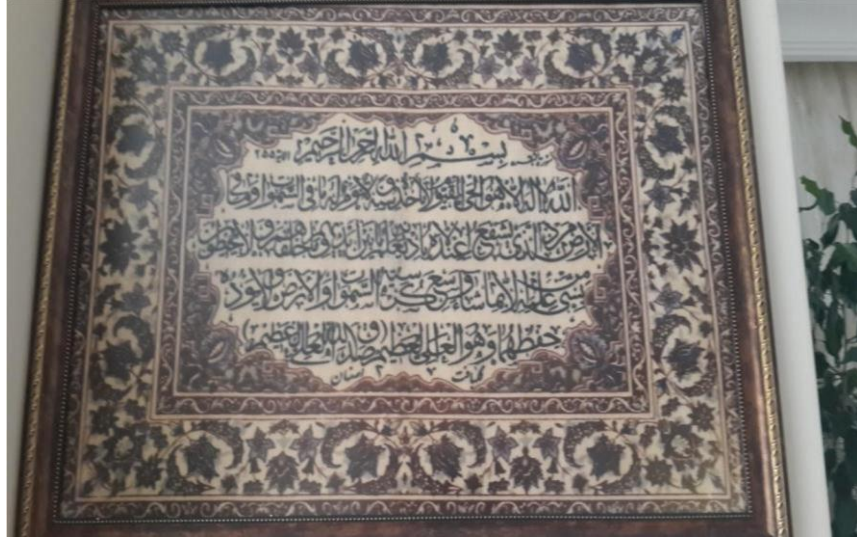 بسم الله الرحمن الرحيم الآية ٢٥٥
الله لا اله الا هو الحي القيوم لا تأخذه سنة ولا نوم له ما في السموات وما في
الارض من ذا الذي يشفع عنده الا باذنه يعلم ما بين ايديهم وما خلفهم ولا يحيطون
بشيء من علمه الا بما شاء وسع كرسيه السموات والارض ولا يؤده
حفظهما وهو العلي العظيم (صدق الله العلي العظيم)